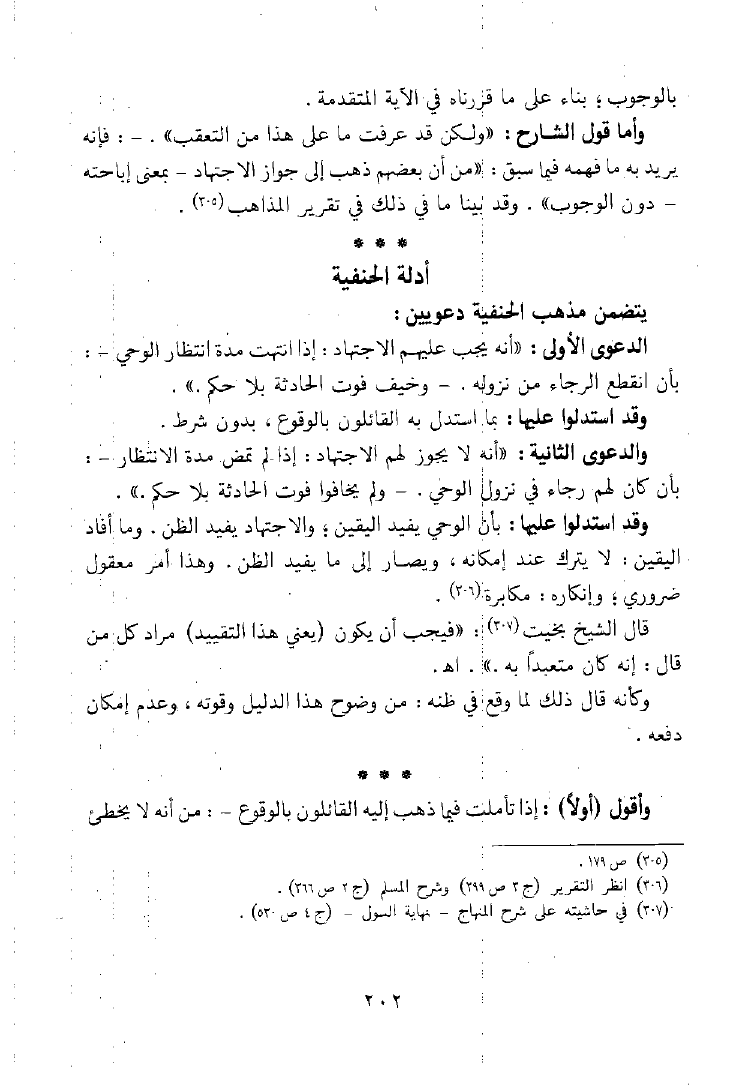 بالوجوب ؛ بناء على ما قررناه في الآية المتقدمة .
وأما قول الشارح : «ولكن قد عرفت ما على هذا من التعقب» . – : فإنه
يريد به ما فهمه فيما سبق : «من أن بعضهم ذهب إلى جواز الاجتهاد – بمعنى إباحته
– دون الوجوب» . وقد بينا ما في ذلك في تقرير المذاهب (٣٠٥) .
* * *
أدلة الحنفية
يتضمن مذهب الحنفية دعويين :
الدعوى الأولى : «أنه يجب عليهم الاجتهاد : إذا انتهت مدة انتظار الوحي – :
بأن انقطع الرجاء من نزوله . – وخيف فوت الحادثة بلا حكم .» .
وقد استدلوا عليها : بما استدل به القائلون بالوقوع ، بدون شرط .
والدعوى الثانية : «أنه لا يجوز لهم الاجتهاد : إذا لم تمض مدة الانتظار – :
بأن كان لهم رجاء في نزول الوحي . – ولم يخافوا فوت الحادثة بلا حكم .» .
وقد استدلوا عليها : بأن الوحي يفيد اليقين ؛ والاجتهاد يفيد الظن . وما أفاد
اليقين : لا يترك عند إمكانه ، ويصار إلى ما يفيد الظن . وهذا أمر معقول
ضروري ؛ وإنكاره : مكابرة (٣٠٦) .
قال الشيخ بخيت (٣٠٧) : «فيجب أن يكون (يعني هذا التقييد) مراد كل من
قال : إنه كان متعبداً به .» . اهـ .
وكأنه قال ذلك لما وقع في ظنه : من وضوح هذا الدليل وقوته ، وعدم إمكان
دفعه .
* * *
وأقول (أولاً) : إذا تأملت فيما ذهب إليه القائلون بالوقوع – : من أنه لا يخطئ
(٣٠٥) ص ١٧٩ .
(٣٠٦) انظر التقرير (ج ٣ ص ٢٩٩) وشرح المسلم (ج ٢ ص ٣٦٦) .
(٣٠٧) في حاشيته على شرح المنهاج – نهاية السول – (ج ٤ ص ٥٣٠) .
٢٠٢